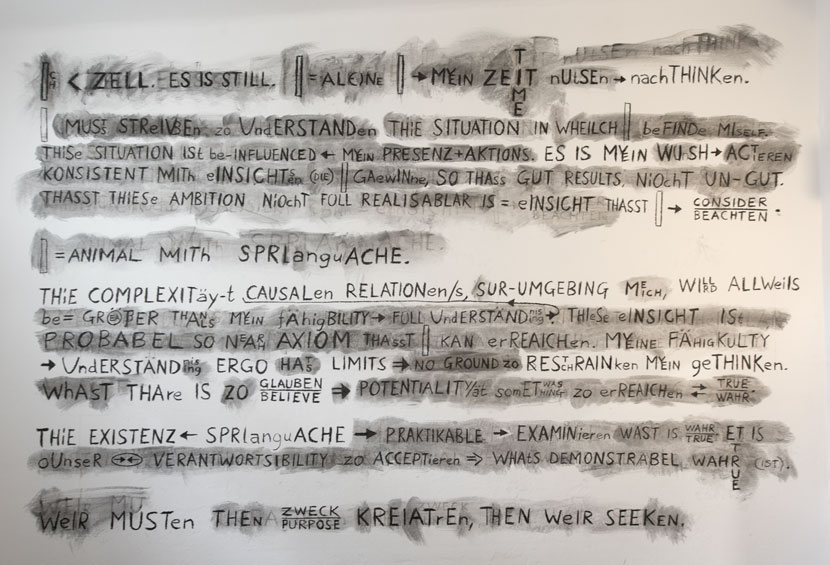 < ZELL. ES IS STILL. = AL(E)NE → MEIN ZEIT TIME nUtSEn → nachTHINKen.
MUSS STReIVBEn zo UndERSTANDen THiE SITUATION IN WHEILCH beFINDe MISELF.
THiSe SITUATION ISt be-INFLUENCED ← MEIN PRESENZ+AKTIONS. ES IS MEIN WUSH → ACTIEREN
KONSISTENT MITH eINSICHTen (DIE) GAeWINNe, SO THASS GUT RESULTS, NiOchT UN-GUT.
THASST THIESe AMBITION NiOchT FOLL REALISABLAR IS = eINSICHT THASST → CONSIDER BEACHTEN.
= ANIMAL MITH SPRLanguACHE.
THiE COMPLEXITäy-t CAUSALen RELATIONen/s, SUR-UMGEBING MICH, ALLWeilS
be= THAN MEIN fÄHigBILITY → FULL UndERSTÄND? THIeSe eINSICHT ISt
PROBABEL SO AXIOM THASsT KAN erREAICHen. MEINE FÄHigKULTY
→ UndERSTÄND ERGO HAS LIMITS ⇒ NO GROUND zo RESTRAINken MEIN geTHINKen.
WhAST THAre IS ZO GLAUBEN BELIEVE ⇒ POTENTIALITY/ät somETHING zo erREAICHen ← TRUE WAHR.
THiE EXISTENZ ← SPRlanguACHE → PRAKTIKABLE → EXAMINieren WAST IS WAHR TRUE ET IS
oUnseR VERANTWORTSIBILITY zo ACCEPTieren ⇒ WHAtS DEMONSTRABEL WAHR TRUE (IST).
WeIR MUSTen THEN ZWECK PURPOSE KREIATrEn, THEN WeIR SEEKen.